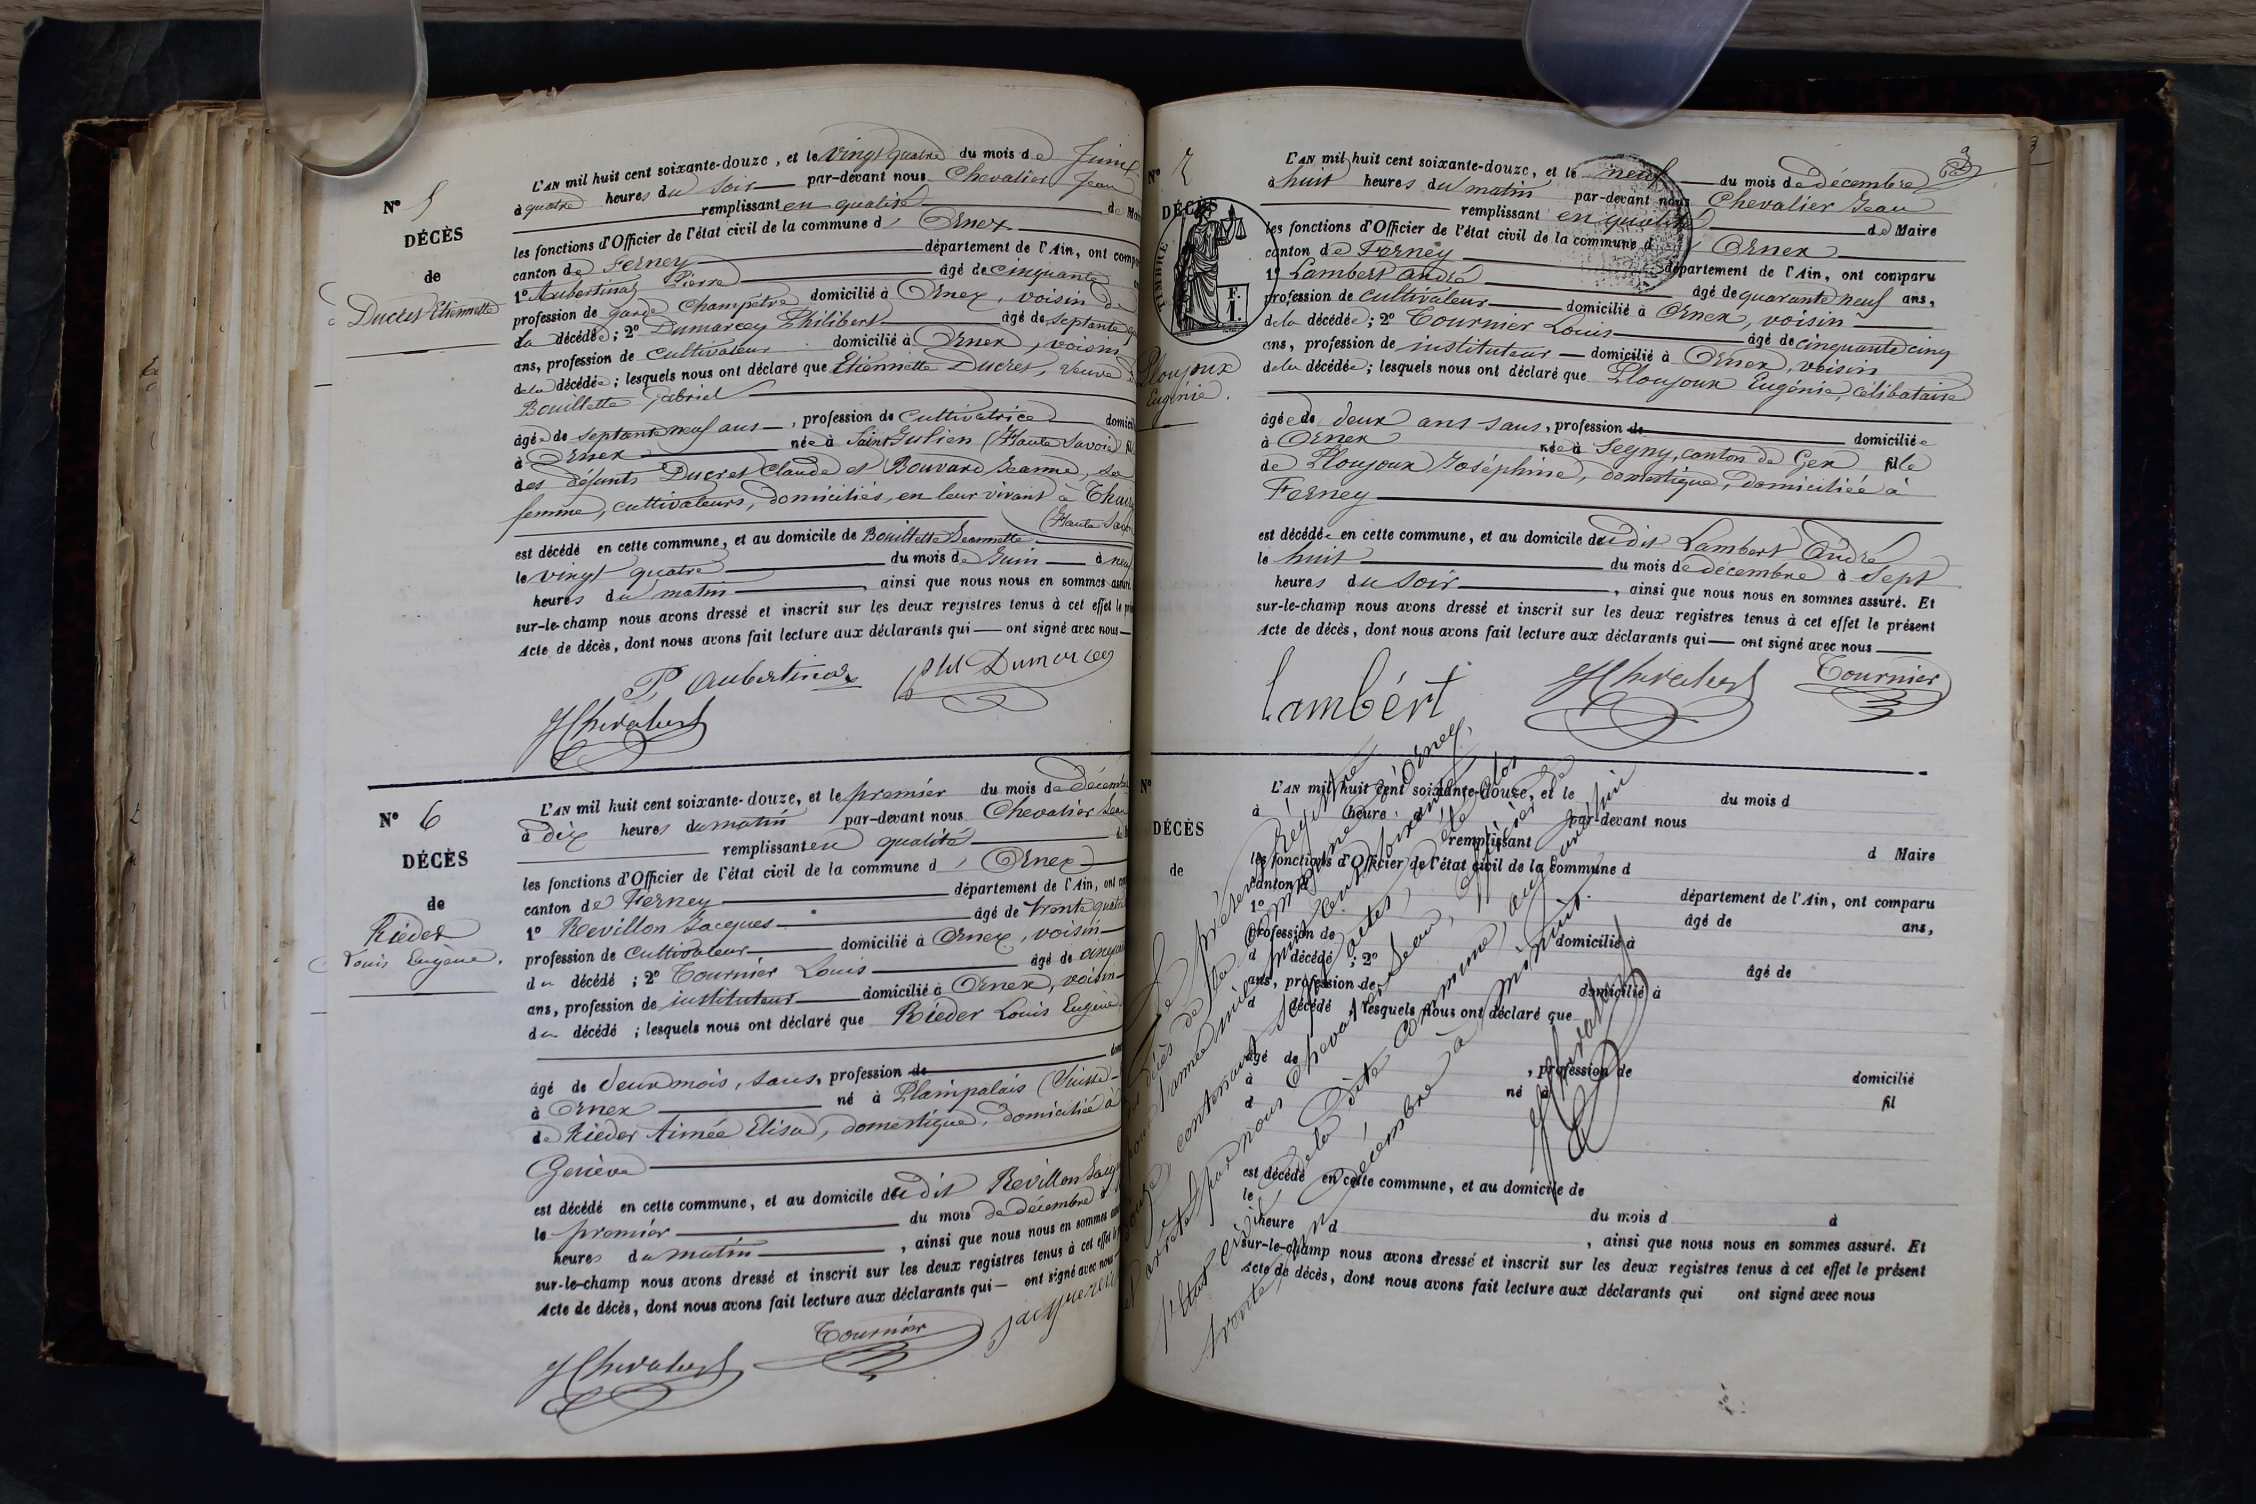 N° 5
DÉCÈS
de
Ducret Etiennette
L'AN mil huit cent soixante-douze, et le vingt quatre du mois de Juin
à quatre heures du soir par-devant nous Chevalier Jean
remplissant en qualité de Maire
les fonctions d'Officier de l'état civil de la commune d' Ornex
canton de Ferney département de l'Ain, ont comp
1° Aubertinaz Pierre âgé de cinquante
profession de garde champêtre domicilié à Ornex, voisin de
la décédée; 2° Dumarcey Philibert âgé de septante
ans, profession de cultivateur domicilié à Ornex, voisin
de la décédée; lesquels nous ont déclaré que Etiennette Ducret, veuve
Bouillette Gabriel
âgée de septante neuf ans, profession de cultivatrice domicil
à Ornex née à Saint Julien (Haute Savoie) fil
des défunts Ducret Claude et Bouvard Jeanne, sa
femme, cultivateurs, domiciliés, en leur vivant à
(Haute Savoie
est décédé en cette commune, et au domicile de Bouillette Jeannette
le vingt quatre du mois de Juin à neuf
heures du matin, ainsi que nous nous en sommes assuré
sur-le-champ nous avons dressé et inscrit sur les deux registres tenus à cet effet le pré
Acte de décès, dont nous avons fait lecture aux déclarants qui ont signé avec nous
P. Aubertinaz Phil Dumarcey
J Chevalier
N° 6
DÉCÈS
de
Rieder
Louis Eugène.
L'AN mil huit cent soixante-douze, et le premier du mois de décembre
à dix heures du matin par-devant nous Chevalier Jean
remplissant en qualité de
les fonctions d'Officier de l'état civil de la commune d' Ornex
canton de Ferney département de l'Ain, ont com
1° Revillon Jacques âgé de trente quatre
profession de cultivateur domicilié à Ornex, voisin
du décédé; 2° Tournier Louis âgé de cinquan
ans, profession de instituteur domicilié à Ornex, voisin
du décédé; lesquels nous ont déclaré que Rieder Louis Eugène
âgé de deux mois, sans, profession de dom
à Ornex né à Plainpalais (Suisse
de Rieder Aimée Elisa, domestique, domiciliée à
Genève
est décédé en cette commune, et au domicile du dit Revillon Jacq
le premier du mois de décembre à
heures du matin, ainsi que nous nous en sommes
sur-le-champ nous avons dressé et inscrit sur les deux registres tenus à cet effet
Acte de décès, dont nous avons fait lecture aux déclarants qui ont signé avec nous
J Chevalier Tournier
N° 7
DÉCÈS
TIMBRE
F.
1.
Ploujoux
Eugénie.
3
L'AN mil huit cent soixante-douze, et le neuf du mois de décembre
à huit heures du matin par-devant nous Chevalier Jean
remplissant en qualité de Maire
les fonctions d'Officier de l'état civil de la commune d' Ornex
canton de Ferney département de l'Ain, ont comparu
1° Lambert André âgé de quarante neuf ans,
profession de cultivateur domicilié à Ornex, voisin
de la décédée; 2° Tournier Louis âgé de cinquante cinq
ans, profession de instituteur domicilié à Ornex, voisin
de la décédée; lesquels nous ont déclaré que Ploujoux Eugénie, célibataire
âgée de deux ans sans, profession de domiciliée
à Ornex née à Segny, canton de Gex fille
de Ploujoux Joséphine, domestique, domiciliée à
Ferney
est décédée en cette commune, et au domicile du dit Lambert André
le huit du mois de décembre à sept
heures du soir, ainsi que nous nous en sommes assuré. Et
sur-le-champ nous avons dressé et inscrit sur les deux registres tenus à cet effet le présent
Acte de décès, dont nous avons fait lecture aux déclarants qui ont signé avec nous
Lambért J Chevalier Tournier
N°
DÉCÈS
de
L'AN mil huit cent soixante-douze, et le du mois d
à heure par-devant nous
remplissant d Maire
les fonctions d'Officier de l'état civil de la commune d
canton d département de l'Ain, ont comparu
1° âgé de ans,
profession de domicilié à
d décédé ; 2° âgé de
ans, profession de domicilié à
d décédé ; lesquels nous ont déclaré que
âgé de , profession de domicilié
à né à fil
d
est décédé en cette commune, et au domicile de
le du mois d à
heure d , ainsi que nous nous en sommes assuré. Et
sur-le-champ nous avons dressé et inscrit sur les deux registres tenus à cet effet le présent
Acte de décès, dont nous avons fait lecture aux déclarants qui ont signé avec nous
Le présent Régistre
des décès de la commune d'Ornex,
pour l'année mil huit cent soixante
douze, contenant sept actes, a été clos
et arrêté par nous Chevalier Jean, officier de
l'état civil de la dite commune, aujourd'hui
trente un décembre à minuit.
J Chevalier